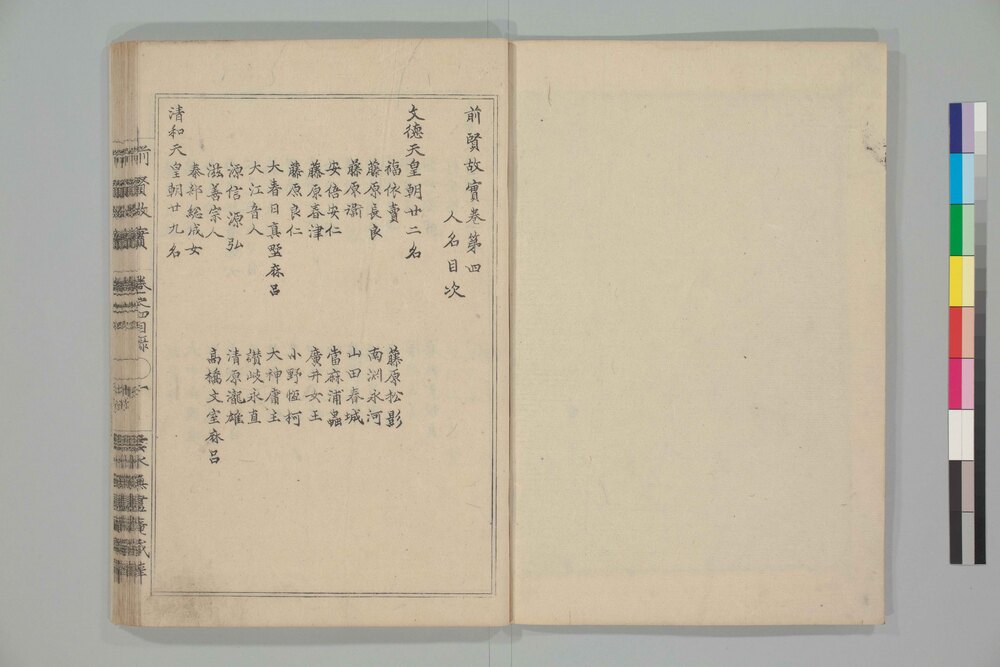 前賢故實卷第四
人名目次
文德天皇朝廿二名
福依賣
藤原長良
藤原衞
安倍安仁
藤原春津
藤原良仁
大春日真野麻呂
大江音人
源信 源弘
滋善宗人
秦部総成女
藤原松影
南渕永河
山田春城
當麻浦蟲
廣井女王
小野恆柯
大神庸主
讃岐永直
清原瀧雄
高橋文室麻呂
清和天皇朝廿九名
前賢故實 卷之四目錄 一